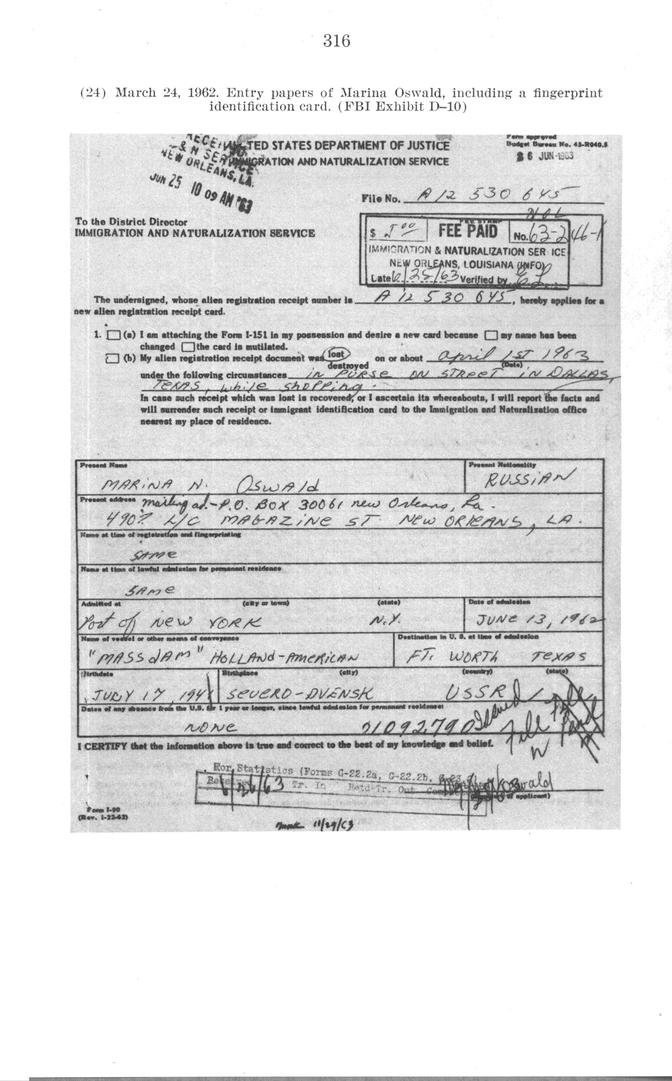 316
(24) March 24, 1962. Entry papers of Marina Oswald, including a fingerprint
identification card. (FBI Exhibit D–10)
Form approved
Budget Bureau No. 43-R040.5
TED STATES DEPARTMENT OF JUSTICE
IMMIGRATION AND NATURALIZATION SERVICE
& N SERVICE
NEW ORLEANS, LA.
JUN 25 10 09 AM '63
26 JUN 1963
File No. A12 530 645
To the District Director
IMMIGRATION AND NATURALIZATION SERVICE
$ 5.00 FEE PAID No. 63-2
IMMIGRATION & NATURALIZATION SERVICE
NEW ORLEANS, LOUISIANA (INFO)
Date 6/25/63 Verified by
The undersigned, whose alien registration receipt number is A 12 530 645, hereby applies for a
new alien registration receipt card.
1. (a) I am attaching the Form I-151 in my possession and desire a new card because my name has been
changed the card is mutilated.
(b) My alien registration receipt document was lost destroyed on or about April 1st 1963
(Date)
under the following circumstances in PURSE ON STREET IN DALLAS,
TEXAS, while shopping.
In case such receipt which was lost is recovered, or I ascertain its whereabouts, I will report the facts and
will surrender such receipt or immigrant identification card to the Immigration and Naturalization office
nearest my place of residence.
Present Name Present Nationality
MARINA N. OSWAld RUSSiAN
Present address mailing ad.-P.O. BOX 30061 new Orleans, La.
4907 L/C MAGAZINE ST NEW ORLEANS, LA.
Name at time of registration and fingerprinting
SAME
Name at time of lawful admission for permanent residence
SAME
Admitted at (city or town) (state) Date of admission
Port of NEW YORK N.Y. JUNE 13, 1962
Name of vessel or other means of conveyance Destination in U. S. at time of admission
"MASSdAM" HOLLAND-AMERICAN FT. WORTH TEXAS
Birthdate Birthplace (city) (country) (state)
JULY 17, 1941 SEVERO-DVENSK USSR
Dates of any absence from the U.S. for 1 year or longer, since lawful admission for permanent residence:
NONE 21092790 Issued
I CERTIFY that the information above is true and correct to the best of my knowledge and belief.
For Statistics (Forms G-22.2a, G-22.2b,
6/26/63 Tr. In Retd-Tr. Out
of applicant)
Form I-90
(Rev. 1-22-62)
11/29/63